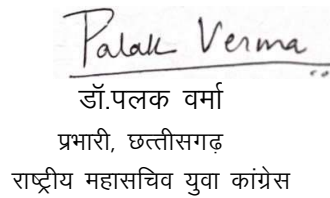 Palak Verma
डॉ.पलक वर्मा
प्रभारी, छत्तीसगढ़
राष्ट्रीय महासचिव युवा कांग्रेस